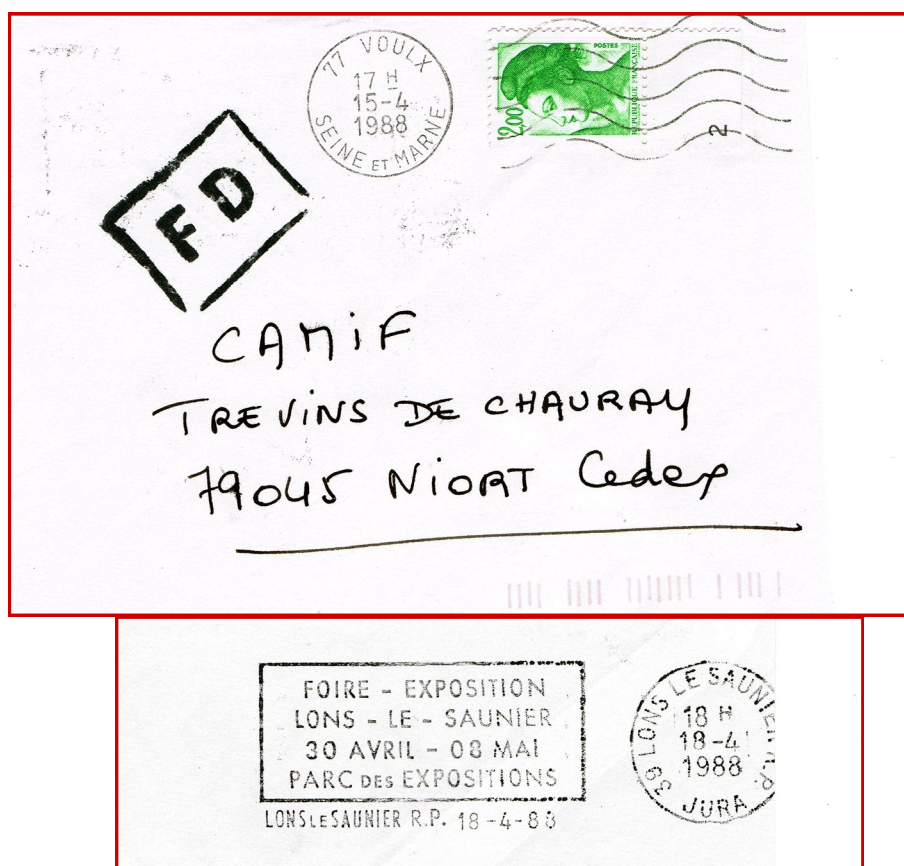 77 VOULX
17 H
15-4
1988
SEINE ET MARNE
POSTES
REPUBLIQUE FRANÇAISE
2,00
2
FD
CAMIF
TREVINS DE CHAURAY
79045 NIORT Cedex
FOIRE - EXPOSITION
LONS - LE - SAUNIER
30 AVRIL - 08 MAI
PARC DES EXPOSITIONS
LONS LE SAUNIER R.P. 18-4-88
39 LONS LE SAUNIER R.P.
18 H
18-4
1988
JURA